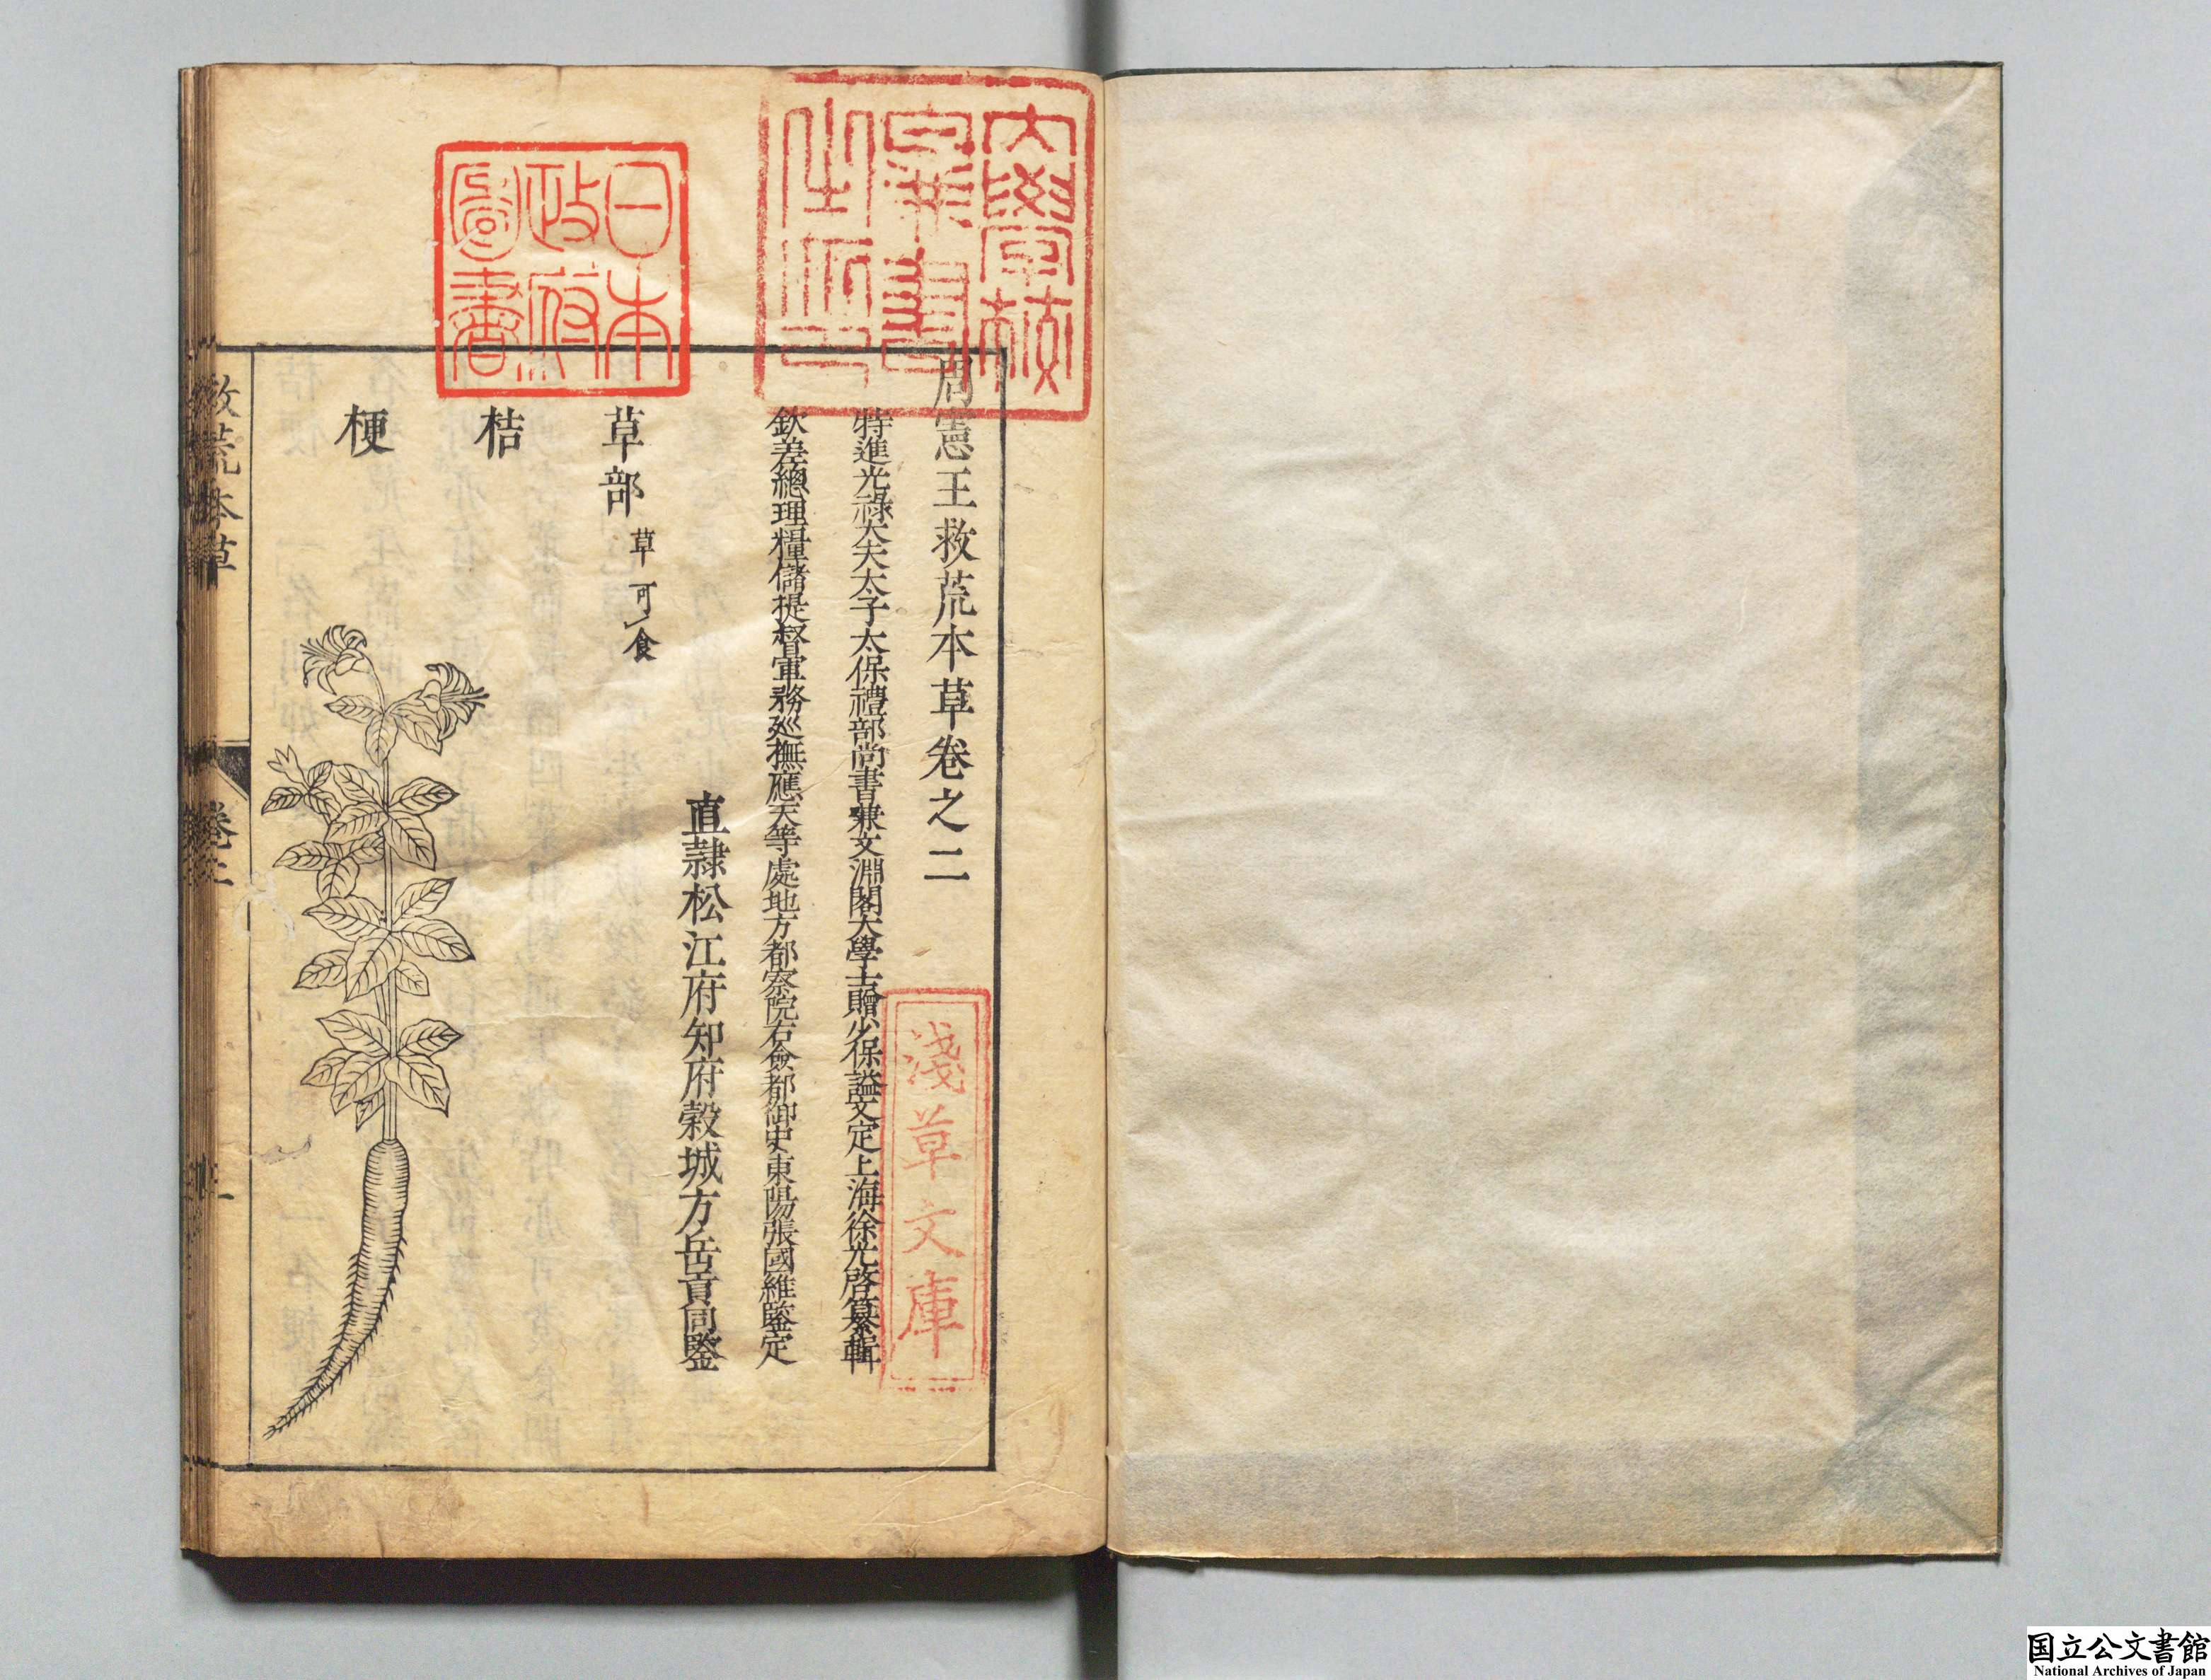 周憲王救荒本草卷之二
特進光祿大夫太子太保禮部尚書兼文淵閣大學士贈少保謚文定上海徐光啓纂輯
欽差總理糧儲提督軍務巡撫應天等處地方都察院右僉都御史東陽張國維鑒定
直隷松江府知府穀城方岳貢同鑒
草部 草可食
桔
梗
救荒本草 卷二
大學校
圖書
之印
日本
政府
圖書
淺草文庫
国立公文書館
National Archives of Japan